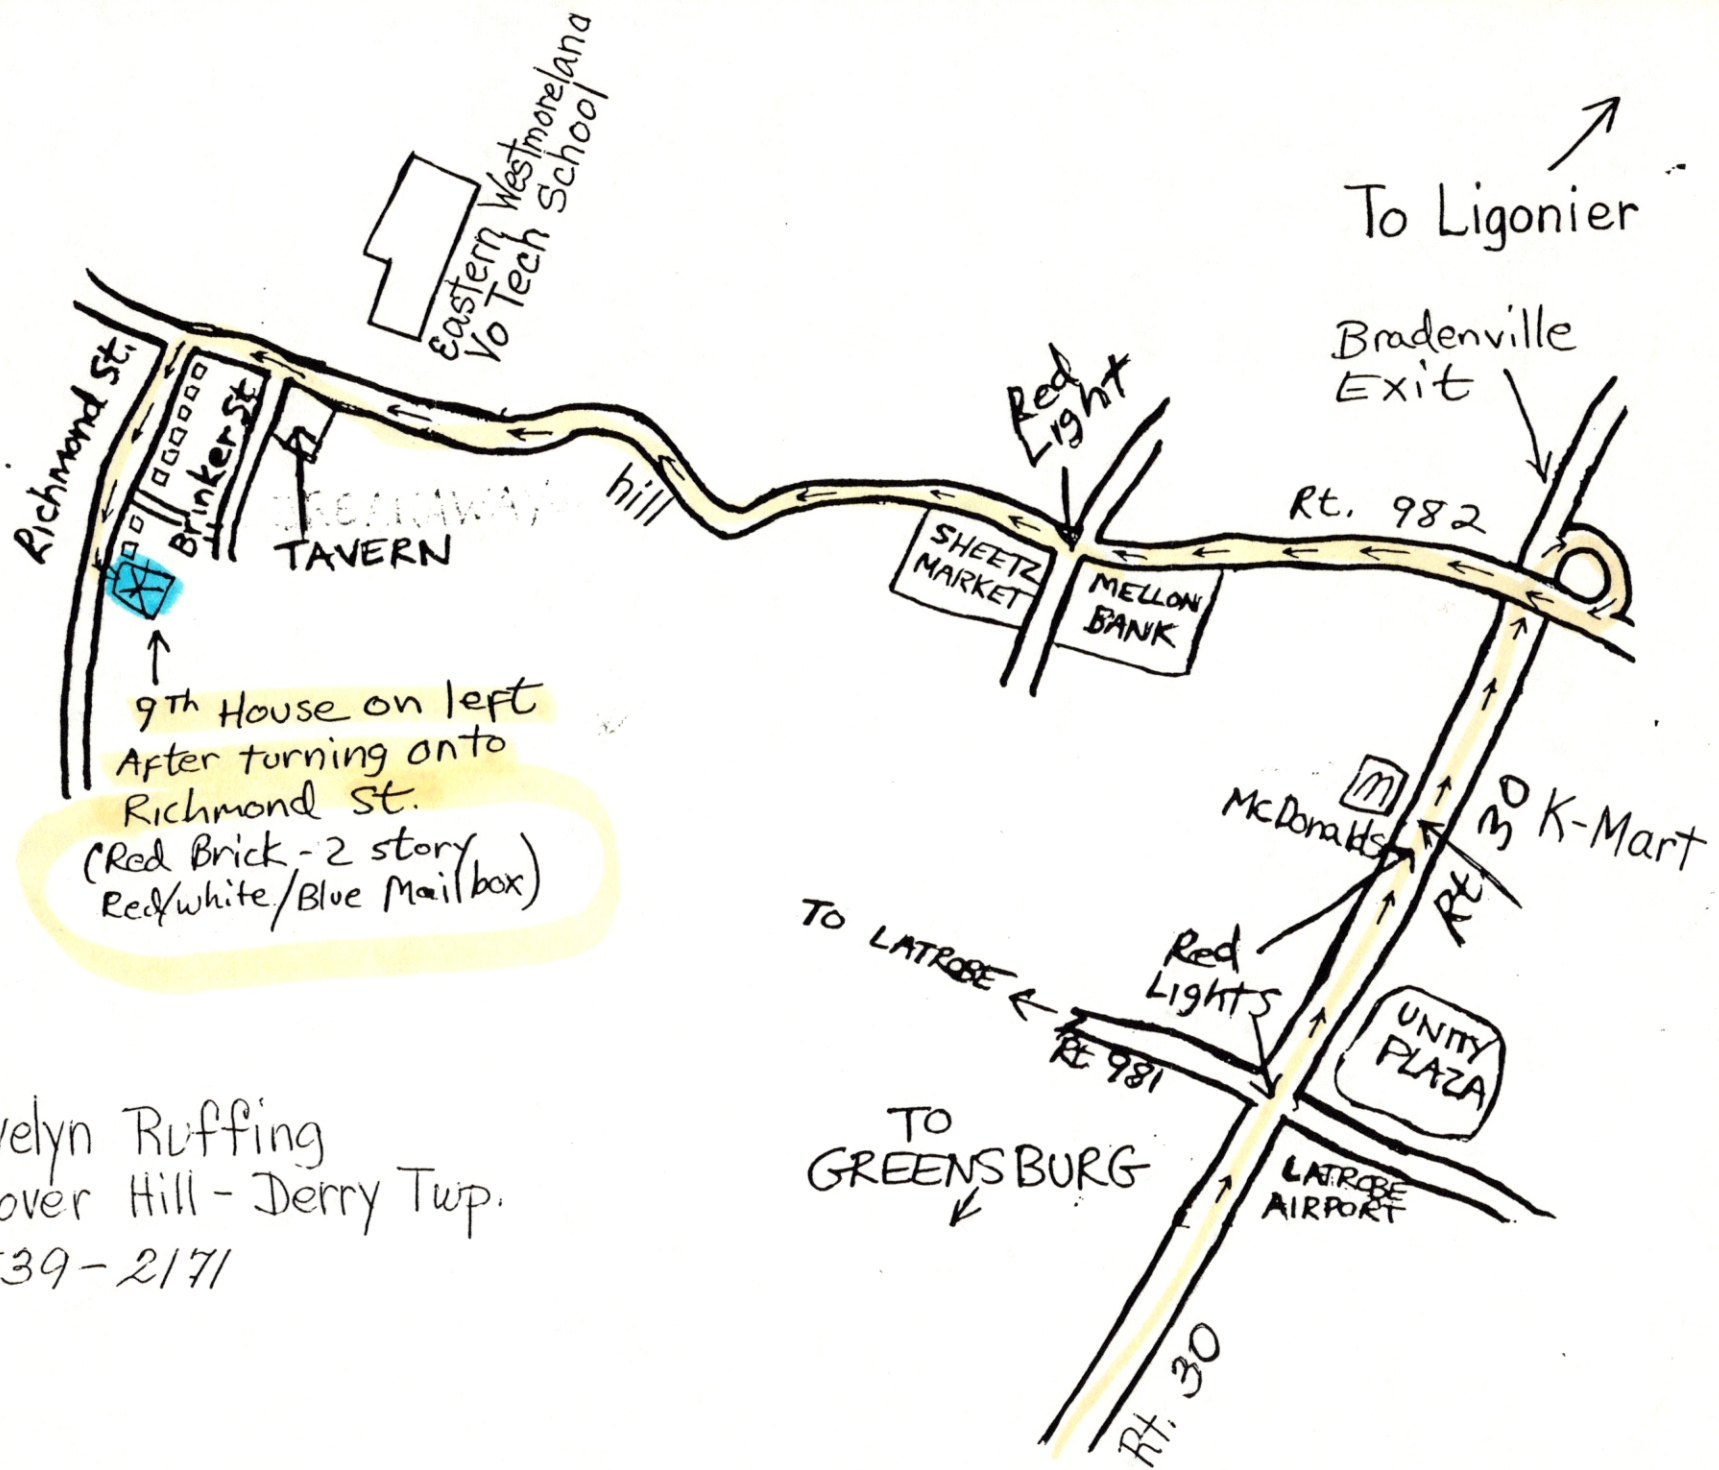 Eastern Westmoreland
Vo Tech School
To Ligonier
Bradenville
Exit
Red
Light
Rt. 982
Richmond St.
Brinker St
TAVERN
hill
SHEETZ
MARKET
MELLON
BANK
9TH House on left
After turning onto
Richmond St.
(Red Brick - 2 story
Red/white/Blue Mailbox)
m
McDonalds
Rt 30
K-Mart
TO LATROBE
Red
Lights
Rt 981
UNITY
PLAZA
TO
GREENSBURG
LATROBE
AIRPORT
Rt. 30
velyn Ruffing
over Hill - Derry Twp.
39-2171